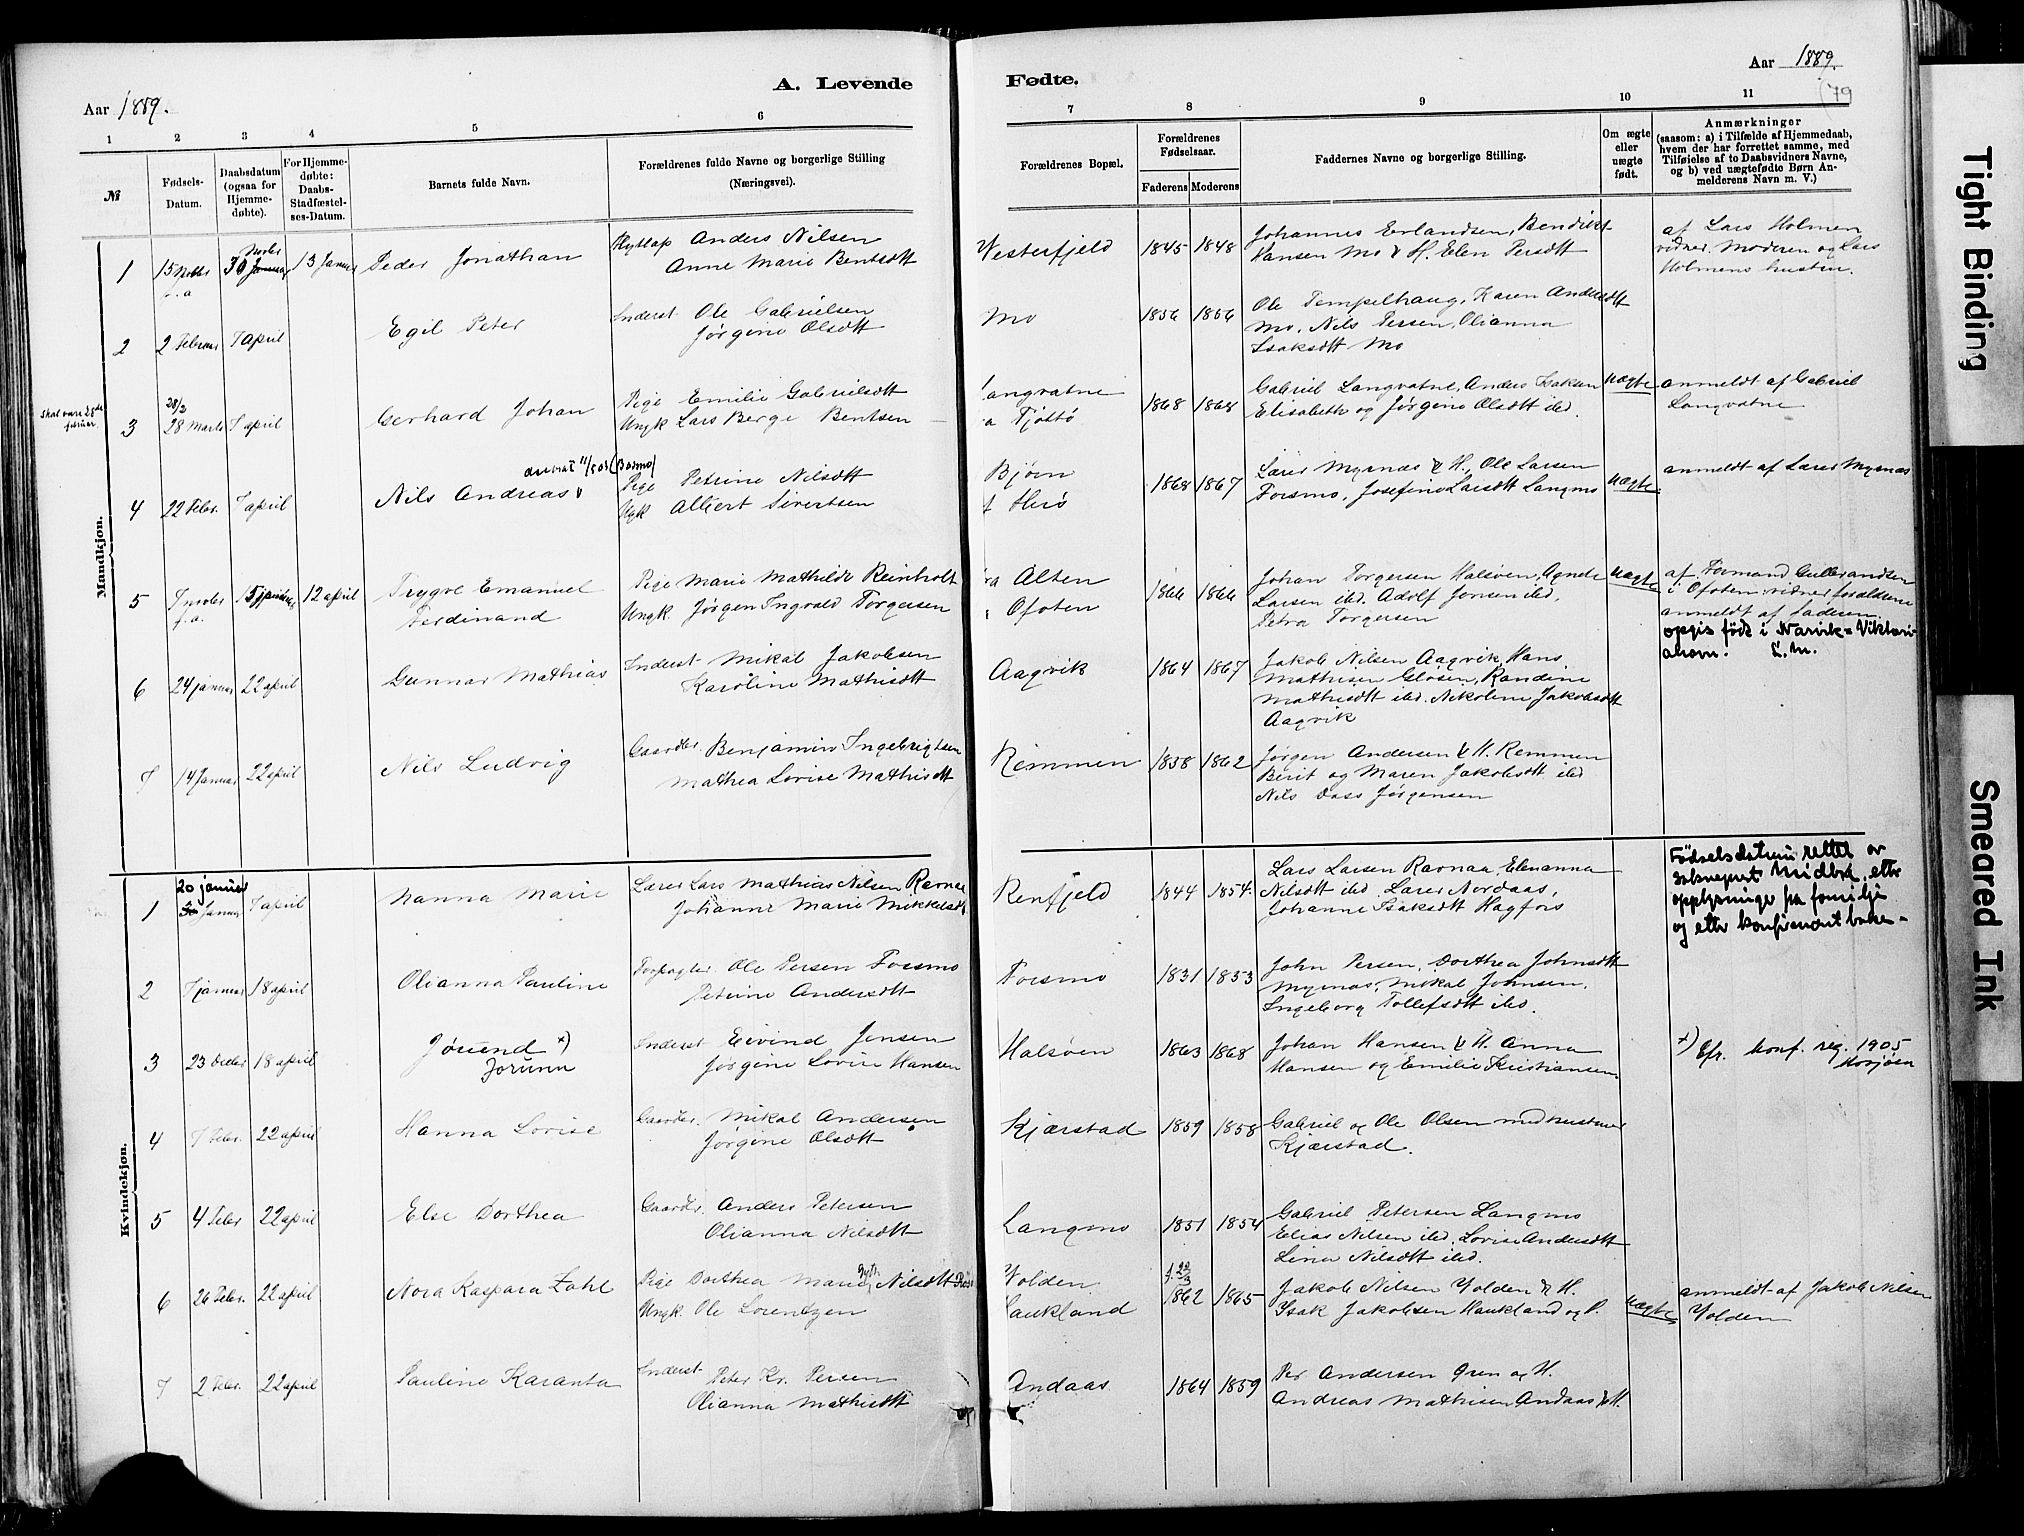 Aar 1889.
A. Levende
Fødte.
Aar 1889.
79
1 2 3 4 5 6 7 8 9 10 11
№
Fødsels-Datum.
Daabsdatum (ogsaa for Hjemme-døbte).
For Hjemme-døbte: Daabs-Stadfæstel-ses-Datum.
Barnets fulde Navn.
Forældrenes fulde Navne og borgerlige Stilling (Næringsvei).
Forældrenes Bopæl.
Forældrenes Fødselsaar.
Faderens Moderens
Faddernes Navne og borgerlige Stilling.
Om ægte eller uægte født.
Anmærkninger
(saasom: a) i Tilfælde af Hjemmedaab, hvem der har forrettet samme, med Tilføielse af to Daabsvidners Navne, og b) ved uægtefødte Børn An-melderens Navn m. V.)
Mandkjøn.
1 13 Januar Peder Jonathan Anders Nilsen Westerfjeld 1845 1848 Johannes Erlandsen, Bendikt af Lars Holmen
Anne Marie Bentsdtt Hansen Mo & H. Elen Persdtt vidner. Moderen og Lars
Holmens hustru.
2 2 Februar 7 april Egil Peter Inderst Ole Gabrielsen Mo 1856 1856 Ole Tempelhaug, Karen Andersdtt
Jørgine Olsdtt Mo, Nils Persen, Olianna
Isaksdtt Mo
skal være 28de februar.
3 28/2 28 Marts 7 april Gerhard Johan Pige Emilie Gabrielsdtt Langvatne 1868 1868 Gabriel Langvatne, Anders Isaksen Uægte anmeldt af Gabriel
Ungk Lars Berge Bentsen Tjøttø Elisabeth og Jørgine Olsdtt ibd. Langvatne
4 22 Febr. 7 april Nils Andreas (Bosmo) Pige Petrine Nilsdtt Bjørn 1868 1867 Lærer Myrnæs & H., Ole Larsen Uægte anmeldt af Lærer Myrnæs
Ungk Albert Sivertsen Herø Forsmo, Josefine Larsdtt Langmo
5 12 april Trygve Emanuel Pige Marie Mathilde Reinholt Alten 1866 1866 Johan Torgersen Halsøen, Agnete Uægte
Ferdinand Ungk. Jørgen Ingvald Torgersen Ofoten Larsen ibd. Adolf Jensen ibd. i Ofoten, vidner forældrene
Petra Torgersen anmeldt af Faderen
opgis født i Narvik = Viktori-
ahavn. L.M.
6 24 januar 22 april Gunnar Mathias Inderst Mikal Jakobsen Aagvik 1864 1867 Jakob Nilsen Aagvik, Hans
Karoline Mathisdtt Mathisen Glosen, Randine
Mathisdtt ibd. Nikoline Jakobsdtt
Aagvik
7 14 Januar 22 april Nils Ludvig Gaardbr. Benjamin Ingebrigtsen Remmen 1858 1862 Jørgen Andersen & H. Remmen
Mathea Lovise Mathisdtt Berit og Maren Jakobsdtt ibd
Nils Dass Jørgensen
Kvindekjøn.
1 20 januar 7 april Nanna Marie Lærer Lars Mathias Nilsen Ravnaa Renfjeld 1844 1854. Lars Larsen Ravnaa, Elenanna Fødselsdatum rettet av
Johanne Marie Mikkelsdtt Nilsdtt ibd Lærer Nordaas, sokneprest Midbø, etter
Johanne Isaksdtt Hagfors opplysninger på familje
og etter konfirmant boka
2 7 januar 18 april Olianna Pauline Forpagter Ole Persen Forsmo Forsmo 1831 1853 John Persen, Dorthea Johnsdtt
Petrine Andersdtt Myrnæs, Mikal Johnsen,
Ingeborg Tollefsdtt ibd.
3 23 Decbr 18 april Jørund x) Jorunn Inderst Eivind Jensen Halsøen 1863 1868 Johan Hansen & H. Anna x) Cfr. konf. reg. 1905
Jørgine Lovise Hansen Hansen og Emilie Kristiansen Mosjøen
4 7 Febr. 22 april Hanna Lovise Gaardbr. Mikal Andersen Kjærstad 1859 1858 Gabriel og Ole Olsen med hustruer
Jørgine Olsdtt Kjærstad.
5 4 Febr 22 april Else Dorthea Gaardbr. Anders Petersen Langmo 1851 1854 Gabriel Petersen Langmo
Olianna Nilsdtt Elias Nilsen ibd. Lovise Andersdtt
Lina Nilsdtt ibd.
6 26 Febr. 22 april Nora Kaspara Zahl Pige Dorthea Marie Nilsdtt Volden 1862 1865 Jakob Nilsen Volden & H. Uægte anmeldt af Jakob Nilsen
Ungk. Ole Lorentzen Haukland Isak Jakobsen Haukland og H. Volden
7 2 Febr. 22 april Pauline Karanta Inderst Peter Kr. Persen Andaas 1864 1859 Per Andersen Øren og H.
Olianna Mathisdtt Andreas Mathisen Andaas & H.
Tight Binding
Smeared Ink